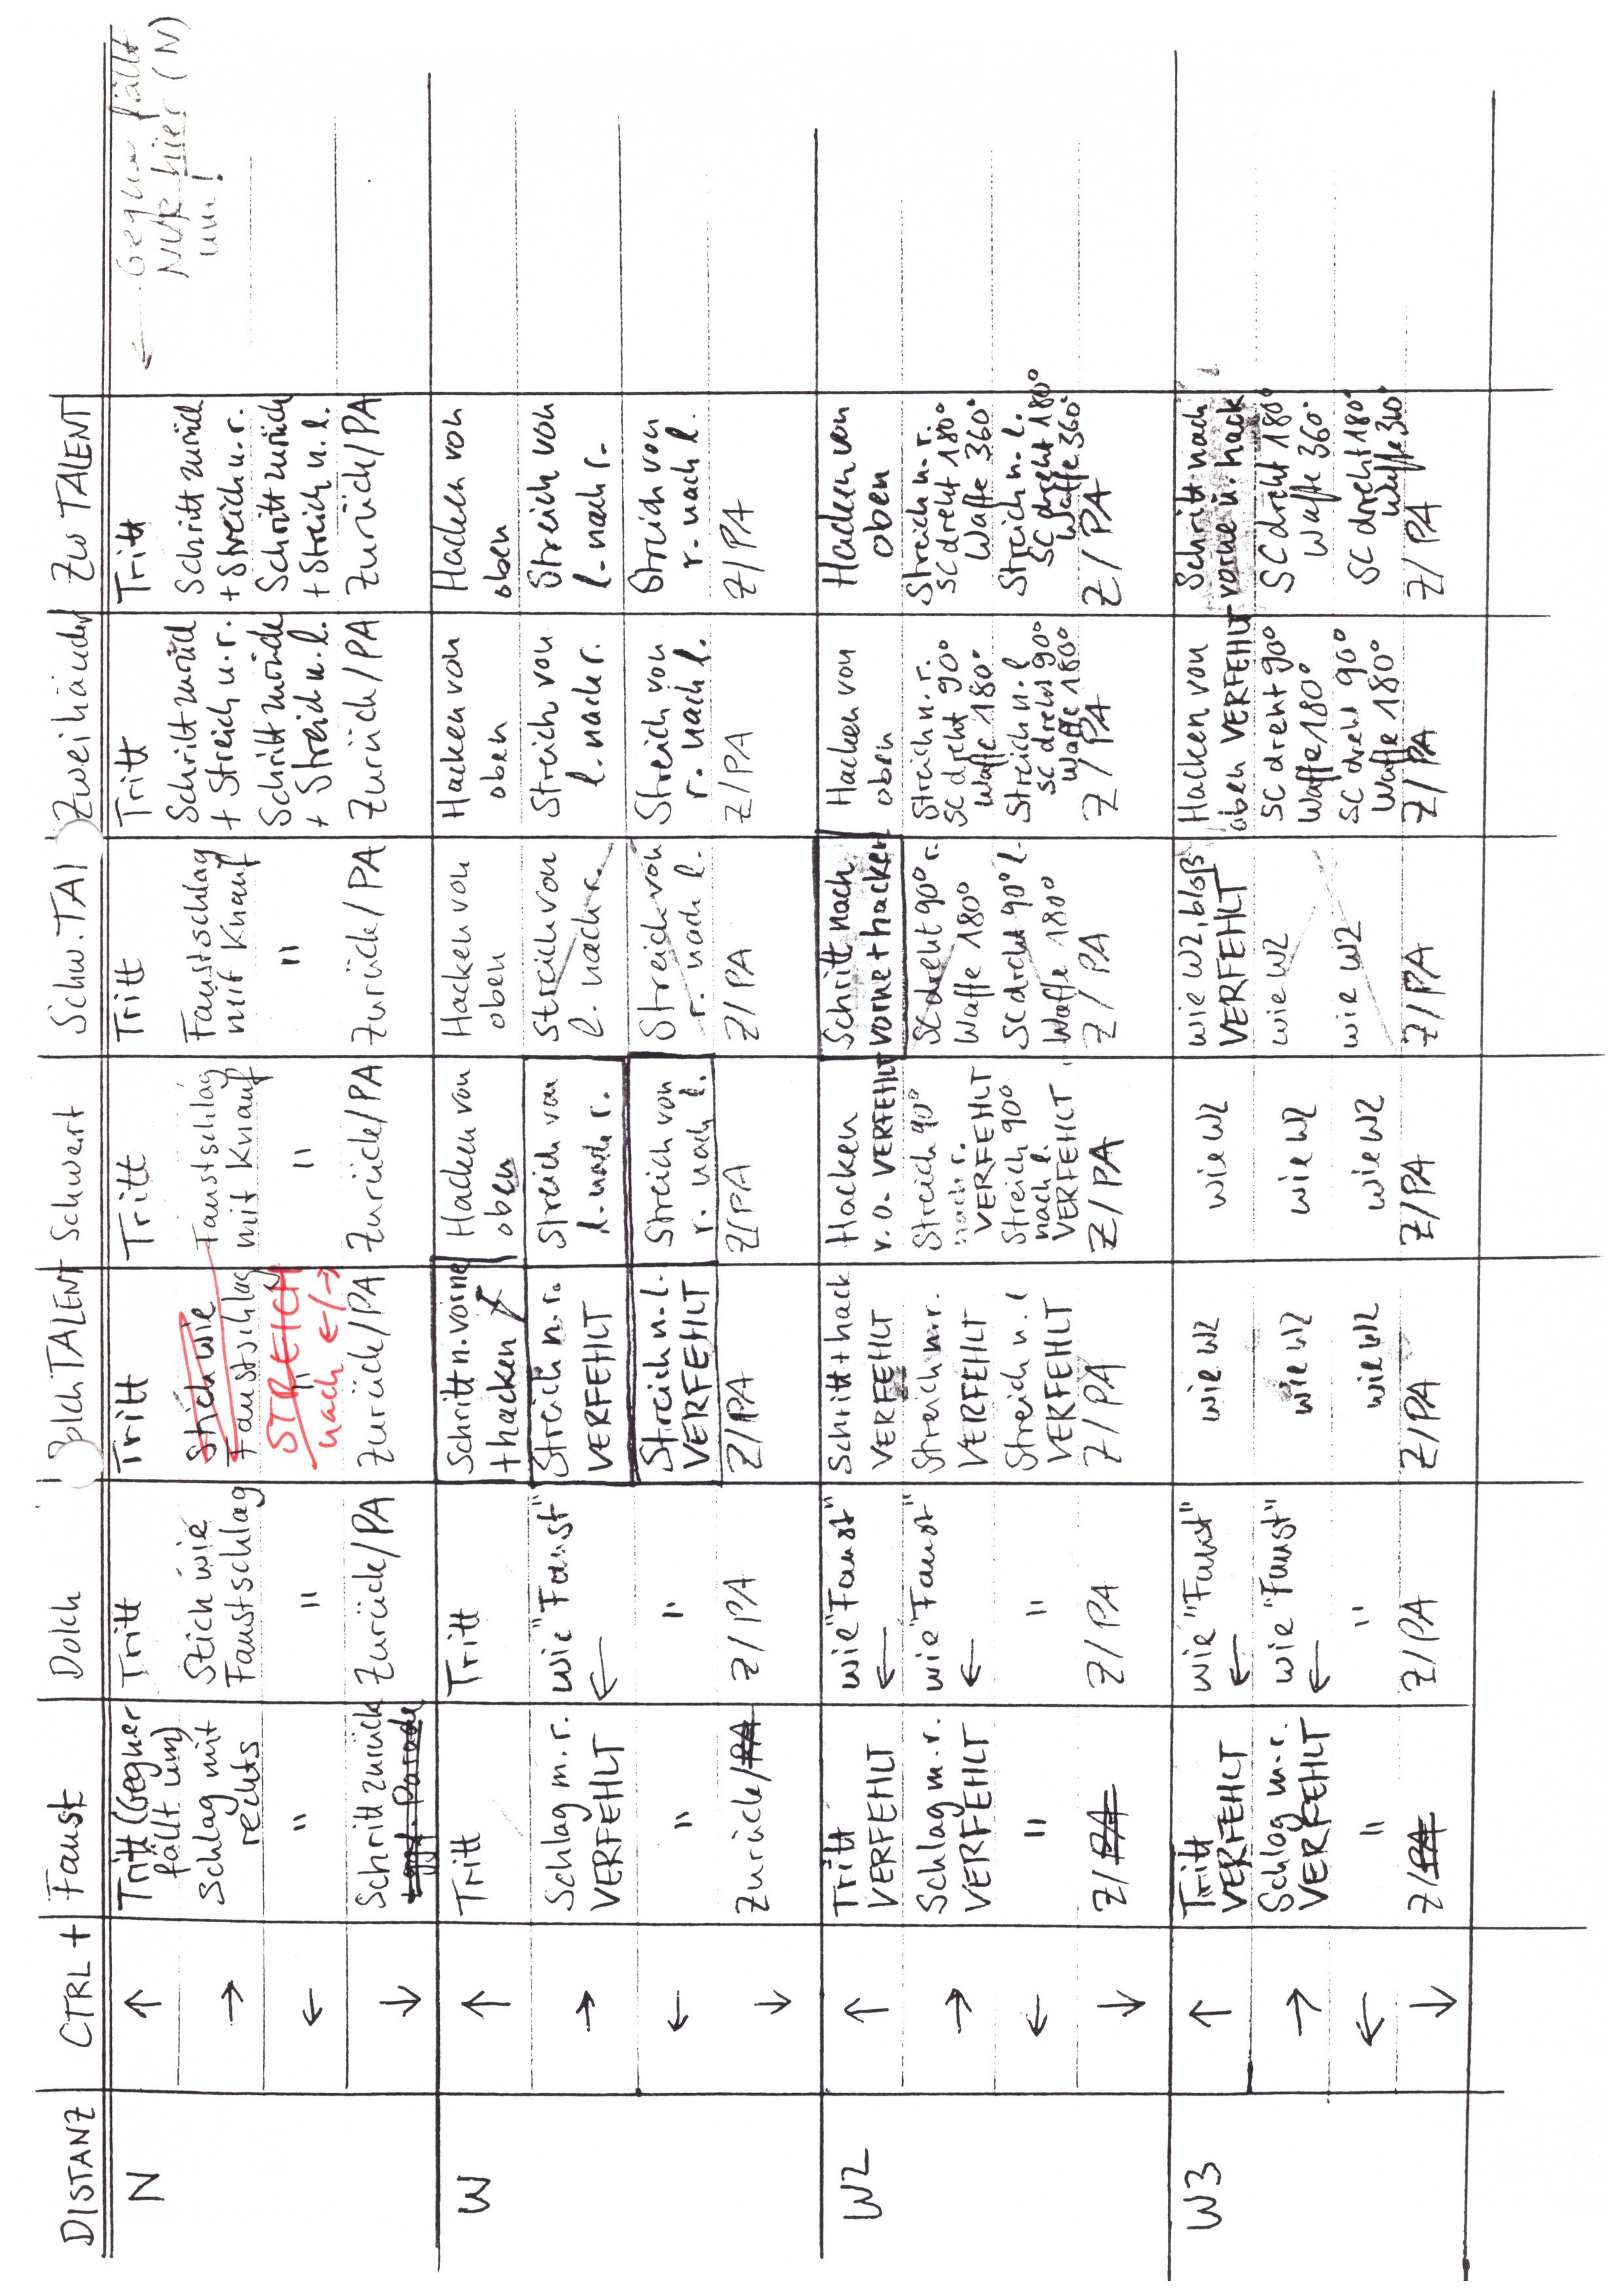 DISTANZ
CTRL +
Faust
Dolch
DolchTALENT
Schwert
Schw. TAl
Zweihänder
Zw TALENT
N
↑
Tritt (Gegner
fällt um)
Tritt
Tritt
Tritt
Tritt
Tritt
Tritt
← Gegner fällt
NUR hier (N)
um!
→
Schlag mit
rechts
Stich wie
Faustschlag
Stich wie
Faustschlag
Faustschlag
mit Knauf
Faustschlag
mit Knauf
Schritt zurück
+ Streich n. r.
Schritt zurück
+ Streich n. r.
←
"
"
"
STREICH
nach ←/→
"
"
Schritt zurück
+ Streich n. l.
Schritt zurück
+ Streich n. l.
↓
Schritt zurück
+ ggf. Parade
Zurück/PA
Zurück/PA
Zurück/PA
Zurück/PA
Zurück/PA
Zurück/PA
W
↑
Tritt
Tritt
Schritt n. vorne
+ hacken
Hacken von
oben
Hacken von
oben
Hacken von
oben
Hacken von
oben
→
Schlag m. r.
VERFEHLT
wie "Faust"
←
Streich n. r.
VERFEHLT
Streich von
l. nach r.
Streich von
l. nach r.
Streich von
l. nach r.
Streich von
l. nach r.
←
"
"
Streich n. l.
VERFEHLT
Streich von
r. nach l.
Streich von
r. nach l.
Streich von
r. nach l.
Streich von
r. nach l.
↓
Zurück/PA
Z/PA
Z/PA
Z/PA
Z/PA
Z/PA
Z/PA
W2
↑
Tritt
VERFEHLT
wie "Faust"
←
Schritt + hack
VERFEHLT
Hacken
v. o. VERFEHLT
Schritt nach
vorne + hacken
Hacken von
oben
Hacken von
oben
→
Schlag m. r.
VERFEHLT
wie "Faust"
←
Streich n. r.
VERFEHLT
Streich 90°
nach r.
VERFEHLT
SC dreht 90° r.
Waffe 180°
Streich n. r.
SC dreht 90°
Waffe 180°
Streich n. r.
SC dreht 180°
Waffe 360°
←
"
"
Streich n. l
VERFEHLT
Streich 90°
nach l.
VERFEHLT
SC dreht 90° l.
Waffe 180°
Streich n. l
SC dreht 90°
Waffe 180°
Streich n. l.
SC dreht 180°
Waffe 360°
↓
Z/PA
Z/PA
Z/PA
Z/PA
Z/PA
Z/PA
Z/PA
W3
↑
Tritt
VERFEHLT
wie "Faust"
←
wie W2
wie W2
wie W2, bloß
VERFEHLT
Hacken von
oben VERFEHLT
Schritt nach
vorne u. hack
→
Schlag m. r.
VERFEHLT
wie "Faust"
←
wie W2
wie W2
wie W2
SC dreht 90°
Waffe 180°
SC dreht 180°
Waffe 360°
←
"
"
wie W2
wie W2
wie W2
SC dreht 90°
Waffe 180°
SC dreht 180°
Waffe 360°
↓
Z/PA
Z/PA
Z/PA
Z/PA
Z/PA
Z/PA
Z/PA